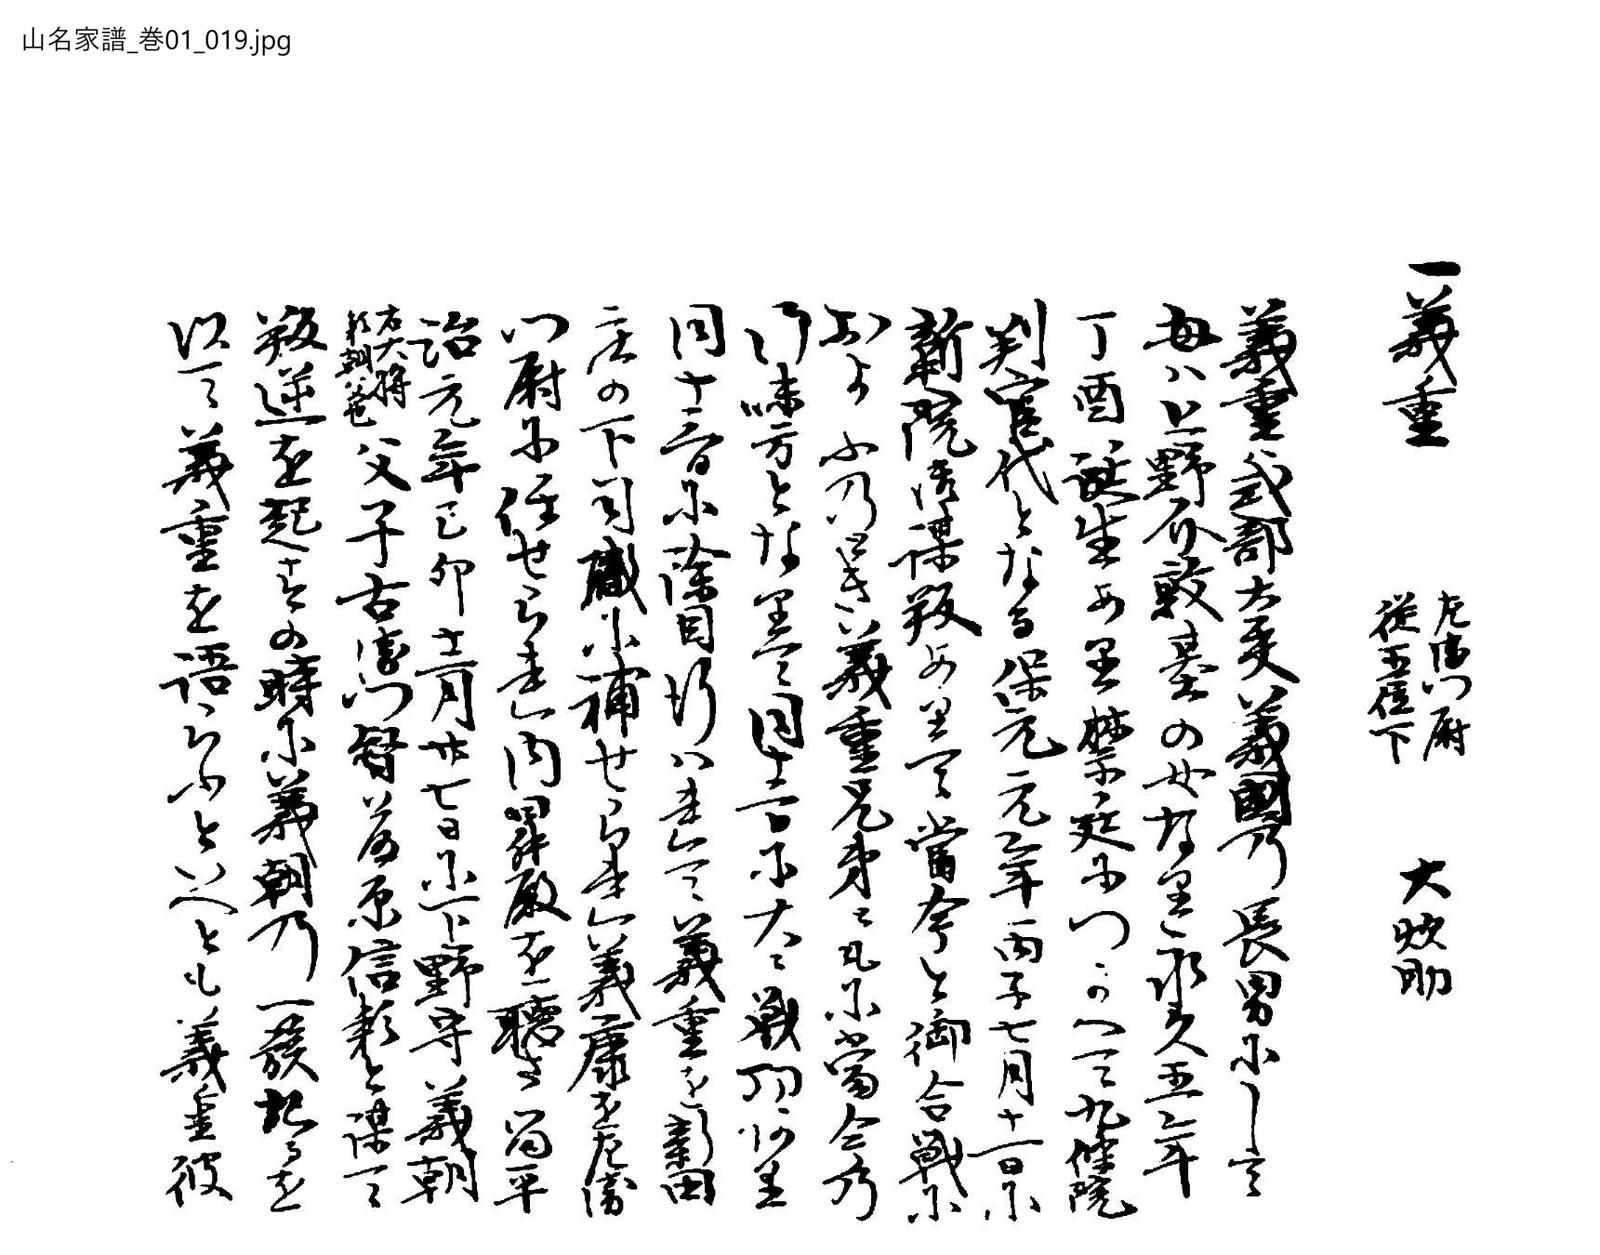 山名家譜_巻01_019.jpg
一義重 左衛門尉 従五位下 大炊助
義重ハ式部大夫義國乃長男にして
母ハ上野介敦基の女なり永久五年
丁酉誕生あり禁廷につかへて九條院
判官代となる保元元年丙子七月十一日に
新院御謀叛ありて當今と御合戦に
およふ乃とき義重兄弟ともに當今乃
御味方となりて同十一日に大に戦功あり
同十三日に除目行ハれて義重を新田
庄の下司職に補せられ義康を左衛
門尉に任せられ内昇殿を聴さる平
治元年己卯十二月廿七日に下野守義朝
右大将頼朝父也 父子右衛門督藤原信頼と謀て
叛逆を起すその時に義朝乃一族記るを
以て義重を語らふといへとも義重彼